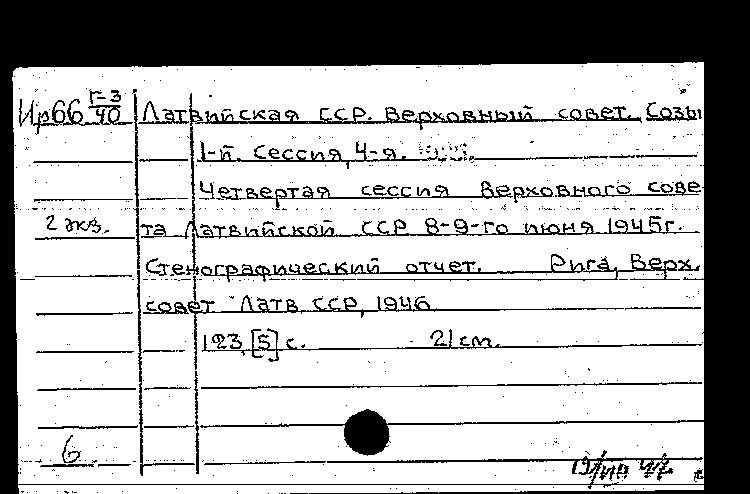 Ир66 Г-3/40 Латвийская ССР. Верховный совет. Созы
1-й. Сессия, 4-я.
Четвертая сессия Верховного сове
2 экз. та Латвийской ССР 8-9-го июня 1945г.
Стенографический отчет. Рига, Верх.
совет Латв. ССР, 1946
123, [5] с. 21 см.
6
47